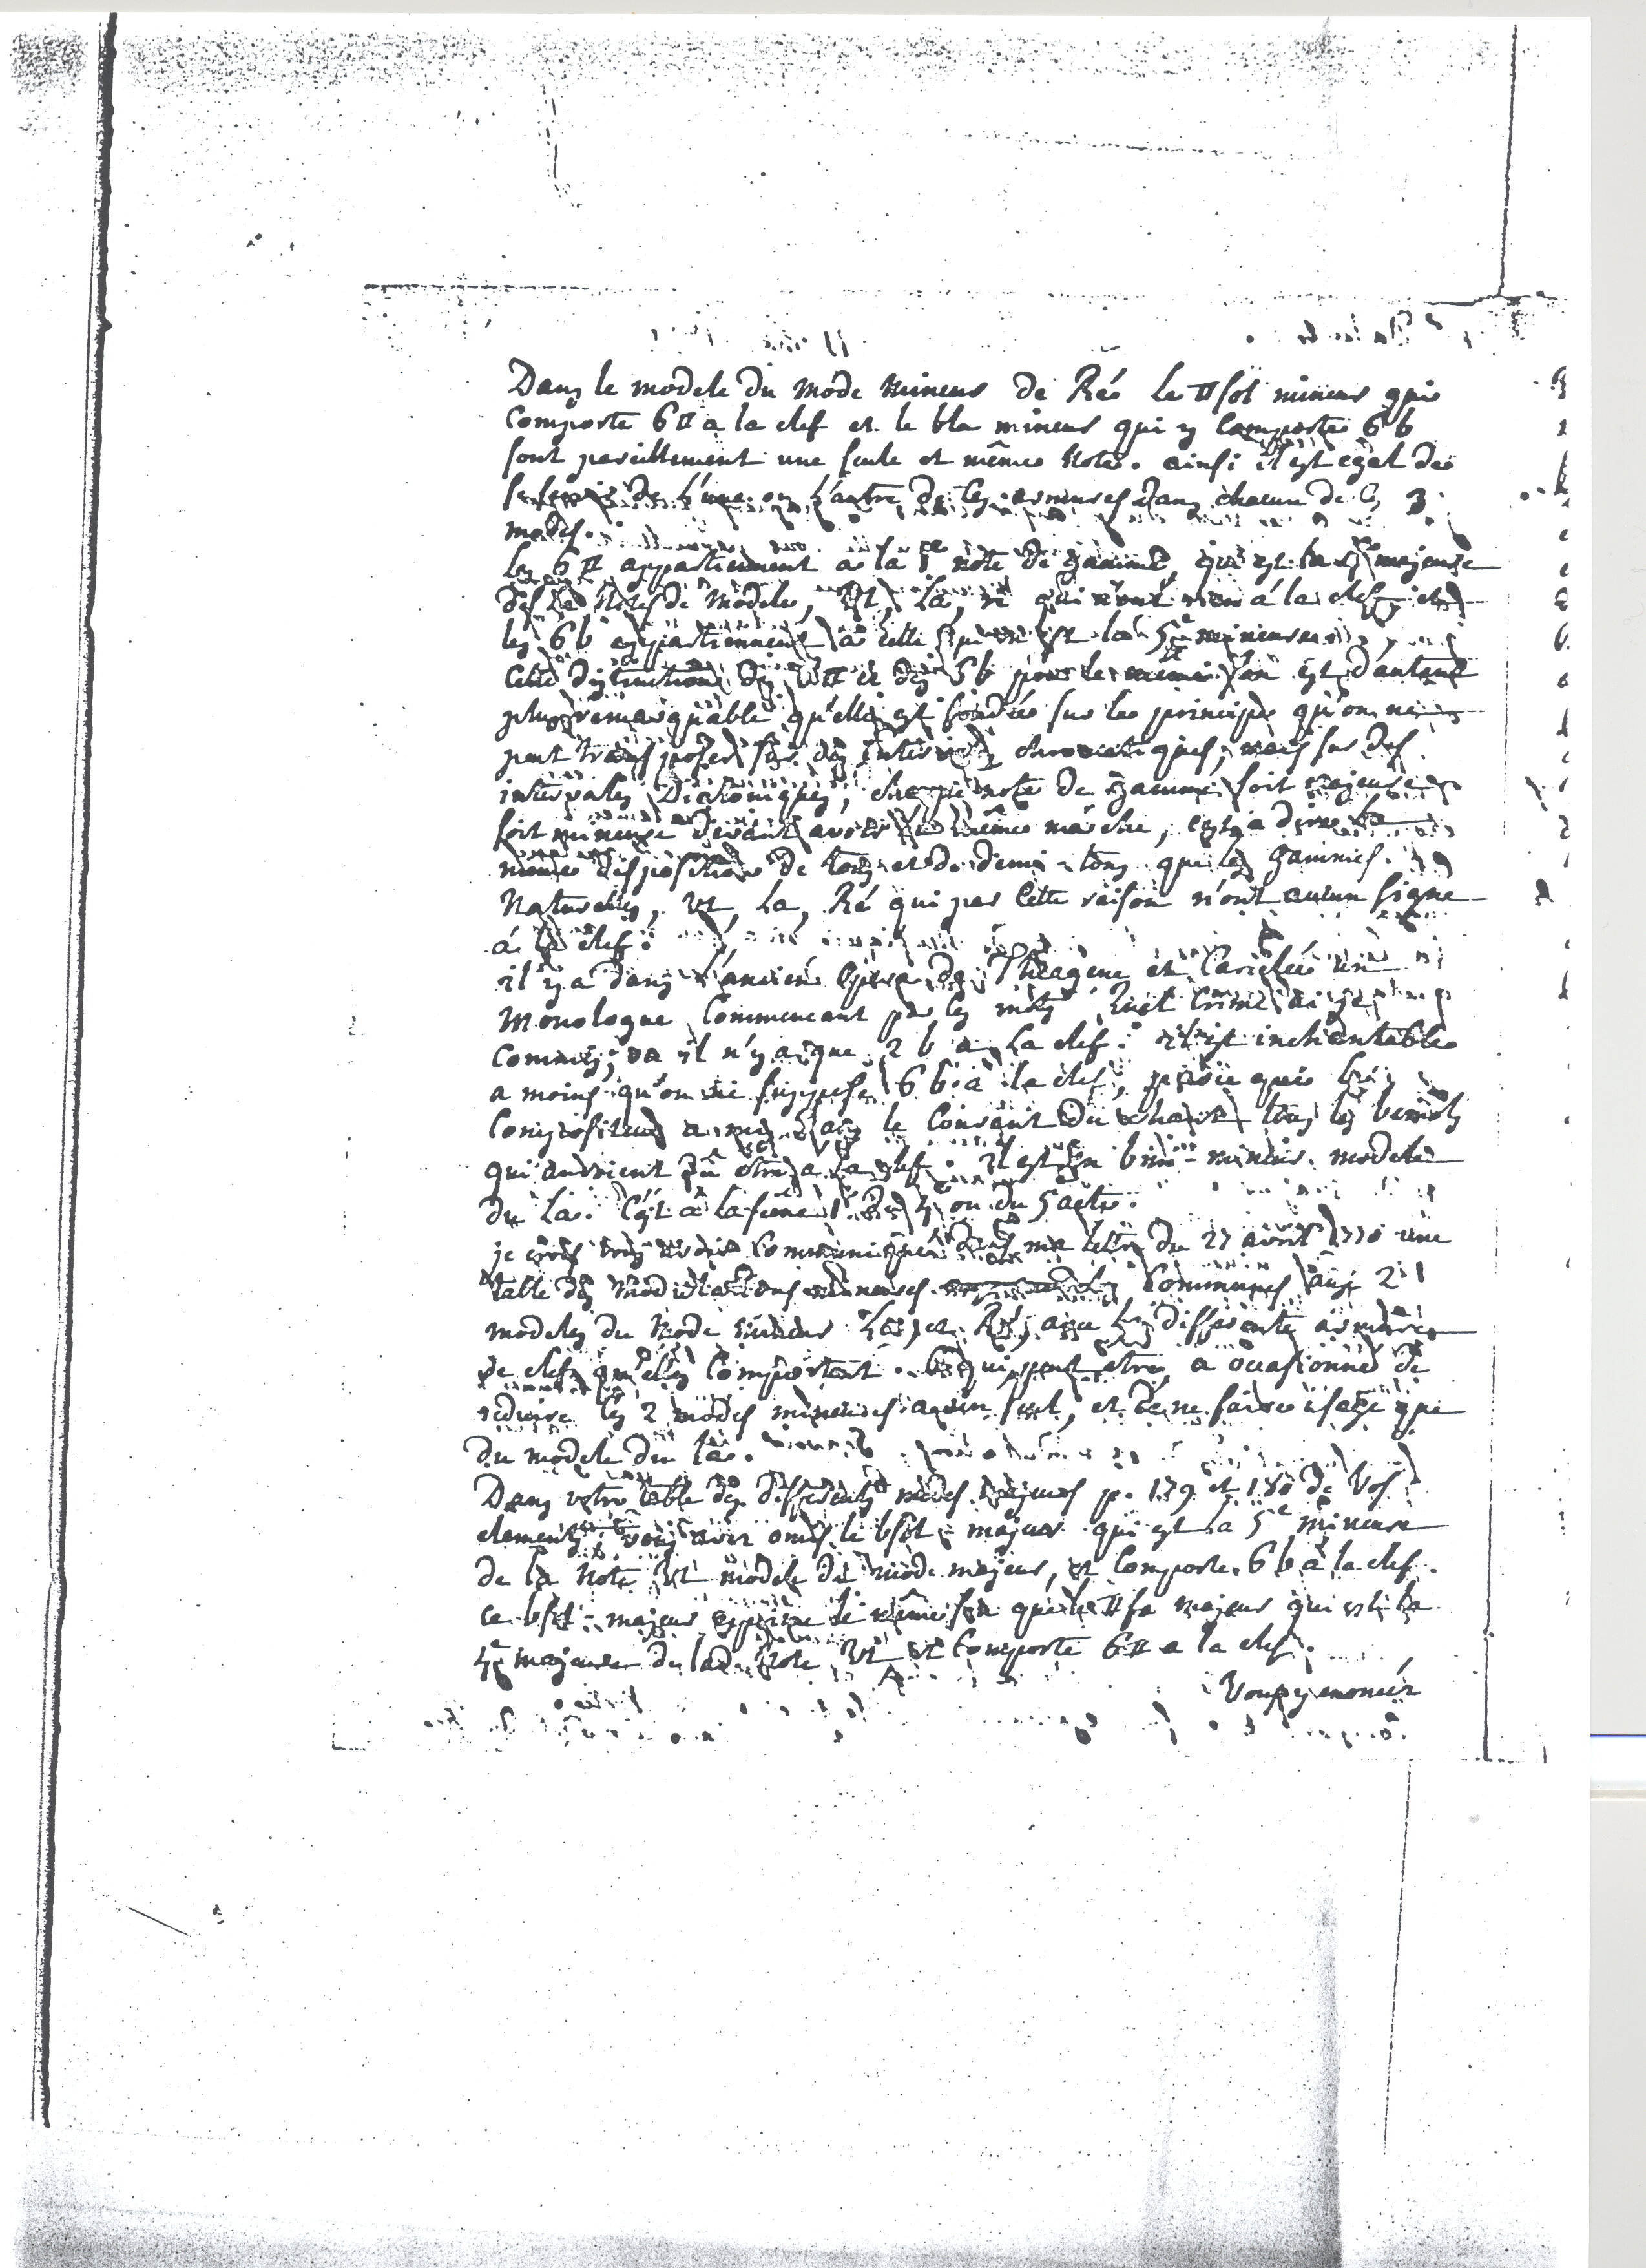 Dans le modele du mode mineur de Ré le # sol mineur qui
comporte 6 # a la clef et le b la mineur qui y comporte 6 b
sont pareillement une seule et même note. ainsi il est egal de
se servir de l'une ou l'autre de ces armures dans chacun de ces 3
modes.
les 6 # appartiennent a la note de gamme, qui est la majeure
des notes de modele, Ut, La, ré qui n'ont rien á la clef, et
les 6 b appartiennent à celle qui en est la 5e mineure
Cette distinction des 6 # et des 6 b pour le même son est d'autant
plus remarquable qu'elle est fondée sur le principe qu'on ne
peut transposer sur des intervales chromatiques, mais sur des
intervales Diatoniques, chaque note de gamme soit majeure
soit mineure devant avoir la même marche, c'est a dire la
même disposition de tons et de demi-tons que les gammes
Naturelles, Ut, La, Ré qui par cette raison n'ont aucun signe
á la clef.
il y a dans l'ancien Opera de Theagene et Cariclée un
Monologue commencant par ces mots quel crime ai je
commis, il n'y a que 2 b a la clef. il est inchantable
a moins qu'on ne suppose 6 b à la clef, parce que le
Compositeur a mis dans le Courant du chant tous les bemols
qui auroient dû être a la clef. il est en b mi-mineur modele
du La. C'est à la scene 1e du 4 ou du 5 acte.
je crois vous avoir communiqué dans ma lettre du 27 avril 1770 une
table des Modulations mineures communes aux 2
modeles du Mode mineur La, et Ré, avec les differente armures
de clefs qu'elles comportent. Ce qui peut etre a occasionné de
reduire les 2 modes mineures a un seul, et de ne faire usage que
du modele du la.
Dans votre table des differents modes majeurs p. 179 et 180 de Vos
elements, vous avez omis le b sol-majeur qui est la 5e mineure
de la Note Ut modele du mode majeur, et comporte 6 b à la clef.
ce b sol-majeur exprime le même son que le # fa majeur qui est la
4e majeure de lad. Note Ut et comporte 6 # a la clef.